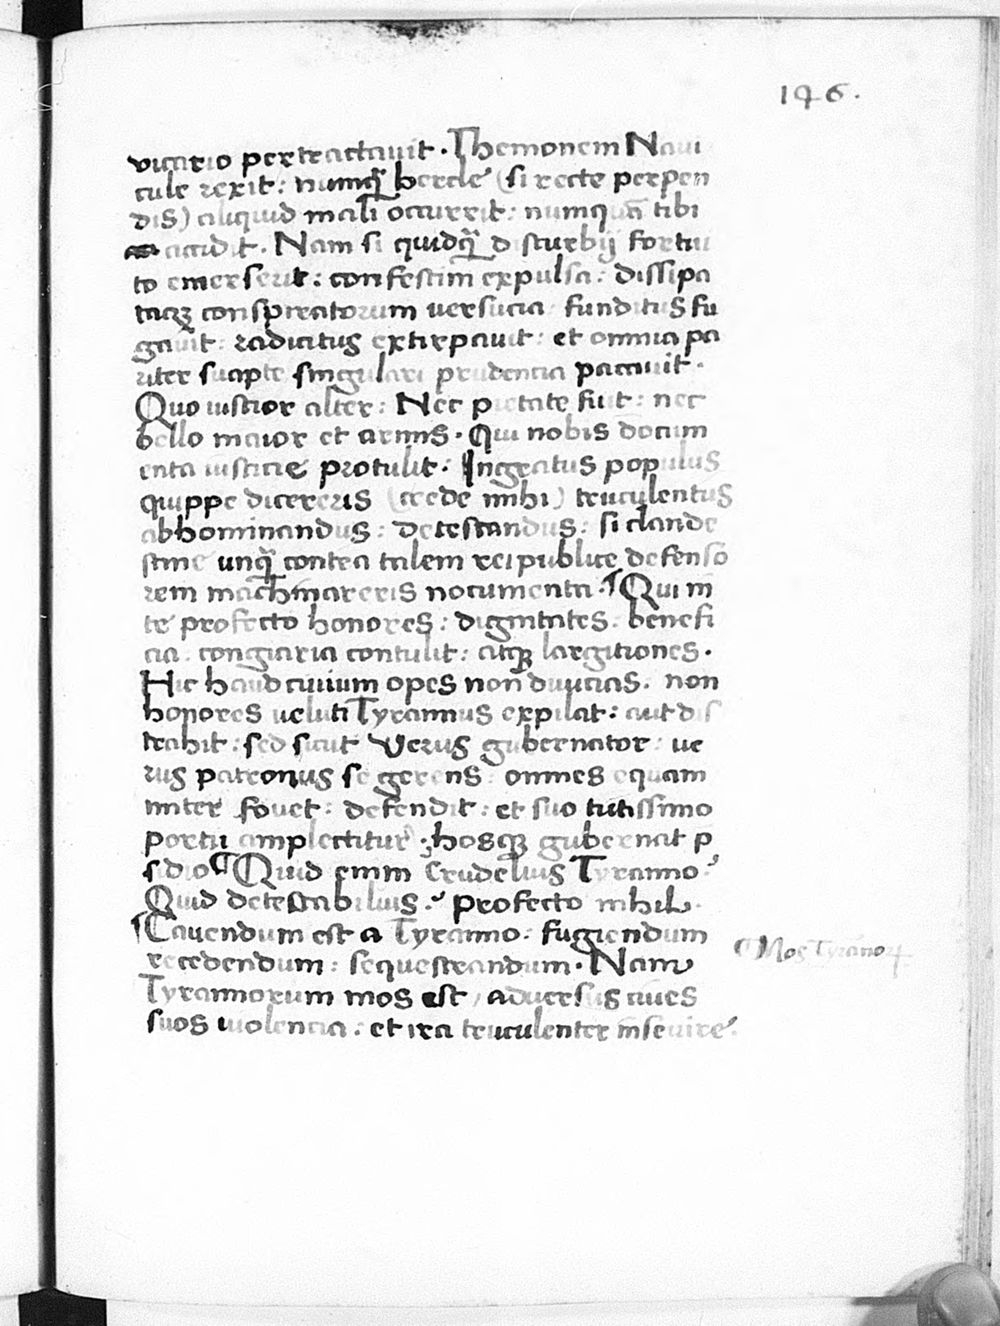 146.
vicario pertractavit. Themonem Navi
cule rexit: numq̄ hercle (si recte perpen
dis) aliquid mali occurrit: numquā tibi
accidit. Nam si quidq̄ disturbij fortui
to emerserit: confestim expulsa: dissipa
taqꝫ conspreatorum versucia funditus fu
gavit: radicitus extirpavit: et omnia pa
riter suapte singulari prudencia pacavit.
Quo iustior alter: Nec pietate fuit: nec
bello maior et armis. Qui nobis docum
enta iusticie protulit. Ingratus populus
quippe dicereris (crede mihi) truculentus
abhominandus: detestandus: si clande
stine unq̄ contra talem rei publice defensō
rem machinareris nocumenta. ¶ Qui in
te profecto honores: dignitates: benefi
cia. congiaria contulit: atqꝫ largitiones.
Hic haud civium opes non divicias. non
honores veluti Tyrannus expilat: aut dis
trahit: sed sicut Verus gubernator: ve
rus patronus se gerens: omnes equam
miter fovet: defendit: et suo tutissimo
portu amplectitur: hosqꝫ gubernat p̄
sidio ¶ Quid enim Crudelius Tyranno?
Quid detestabilius? Profecto nihil.
¶ Cavendum est a Tyranno: fugiendum
recedendum: sequestrandum. Nam
Tyrannorum mos est, adversus cives
suos violencia: et ira truculenter insevire.
¶ Mos Tyrānoꝝ